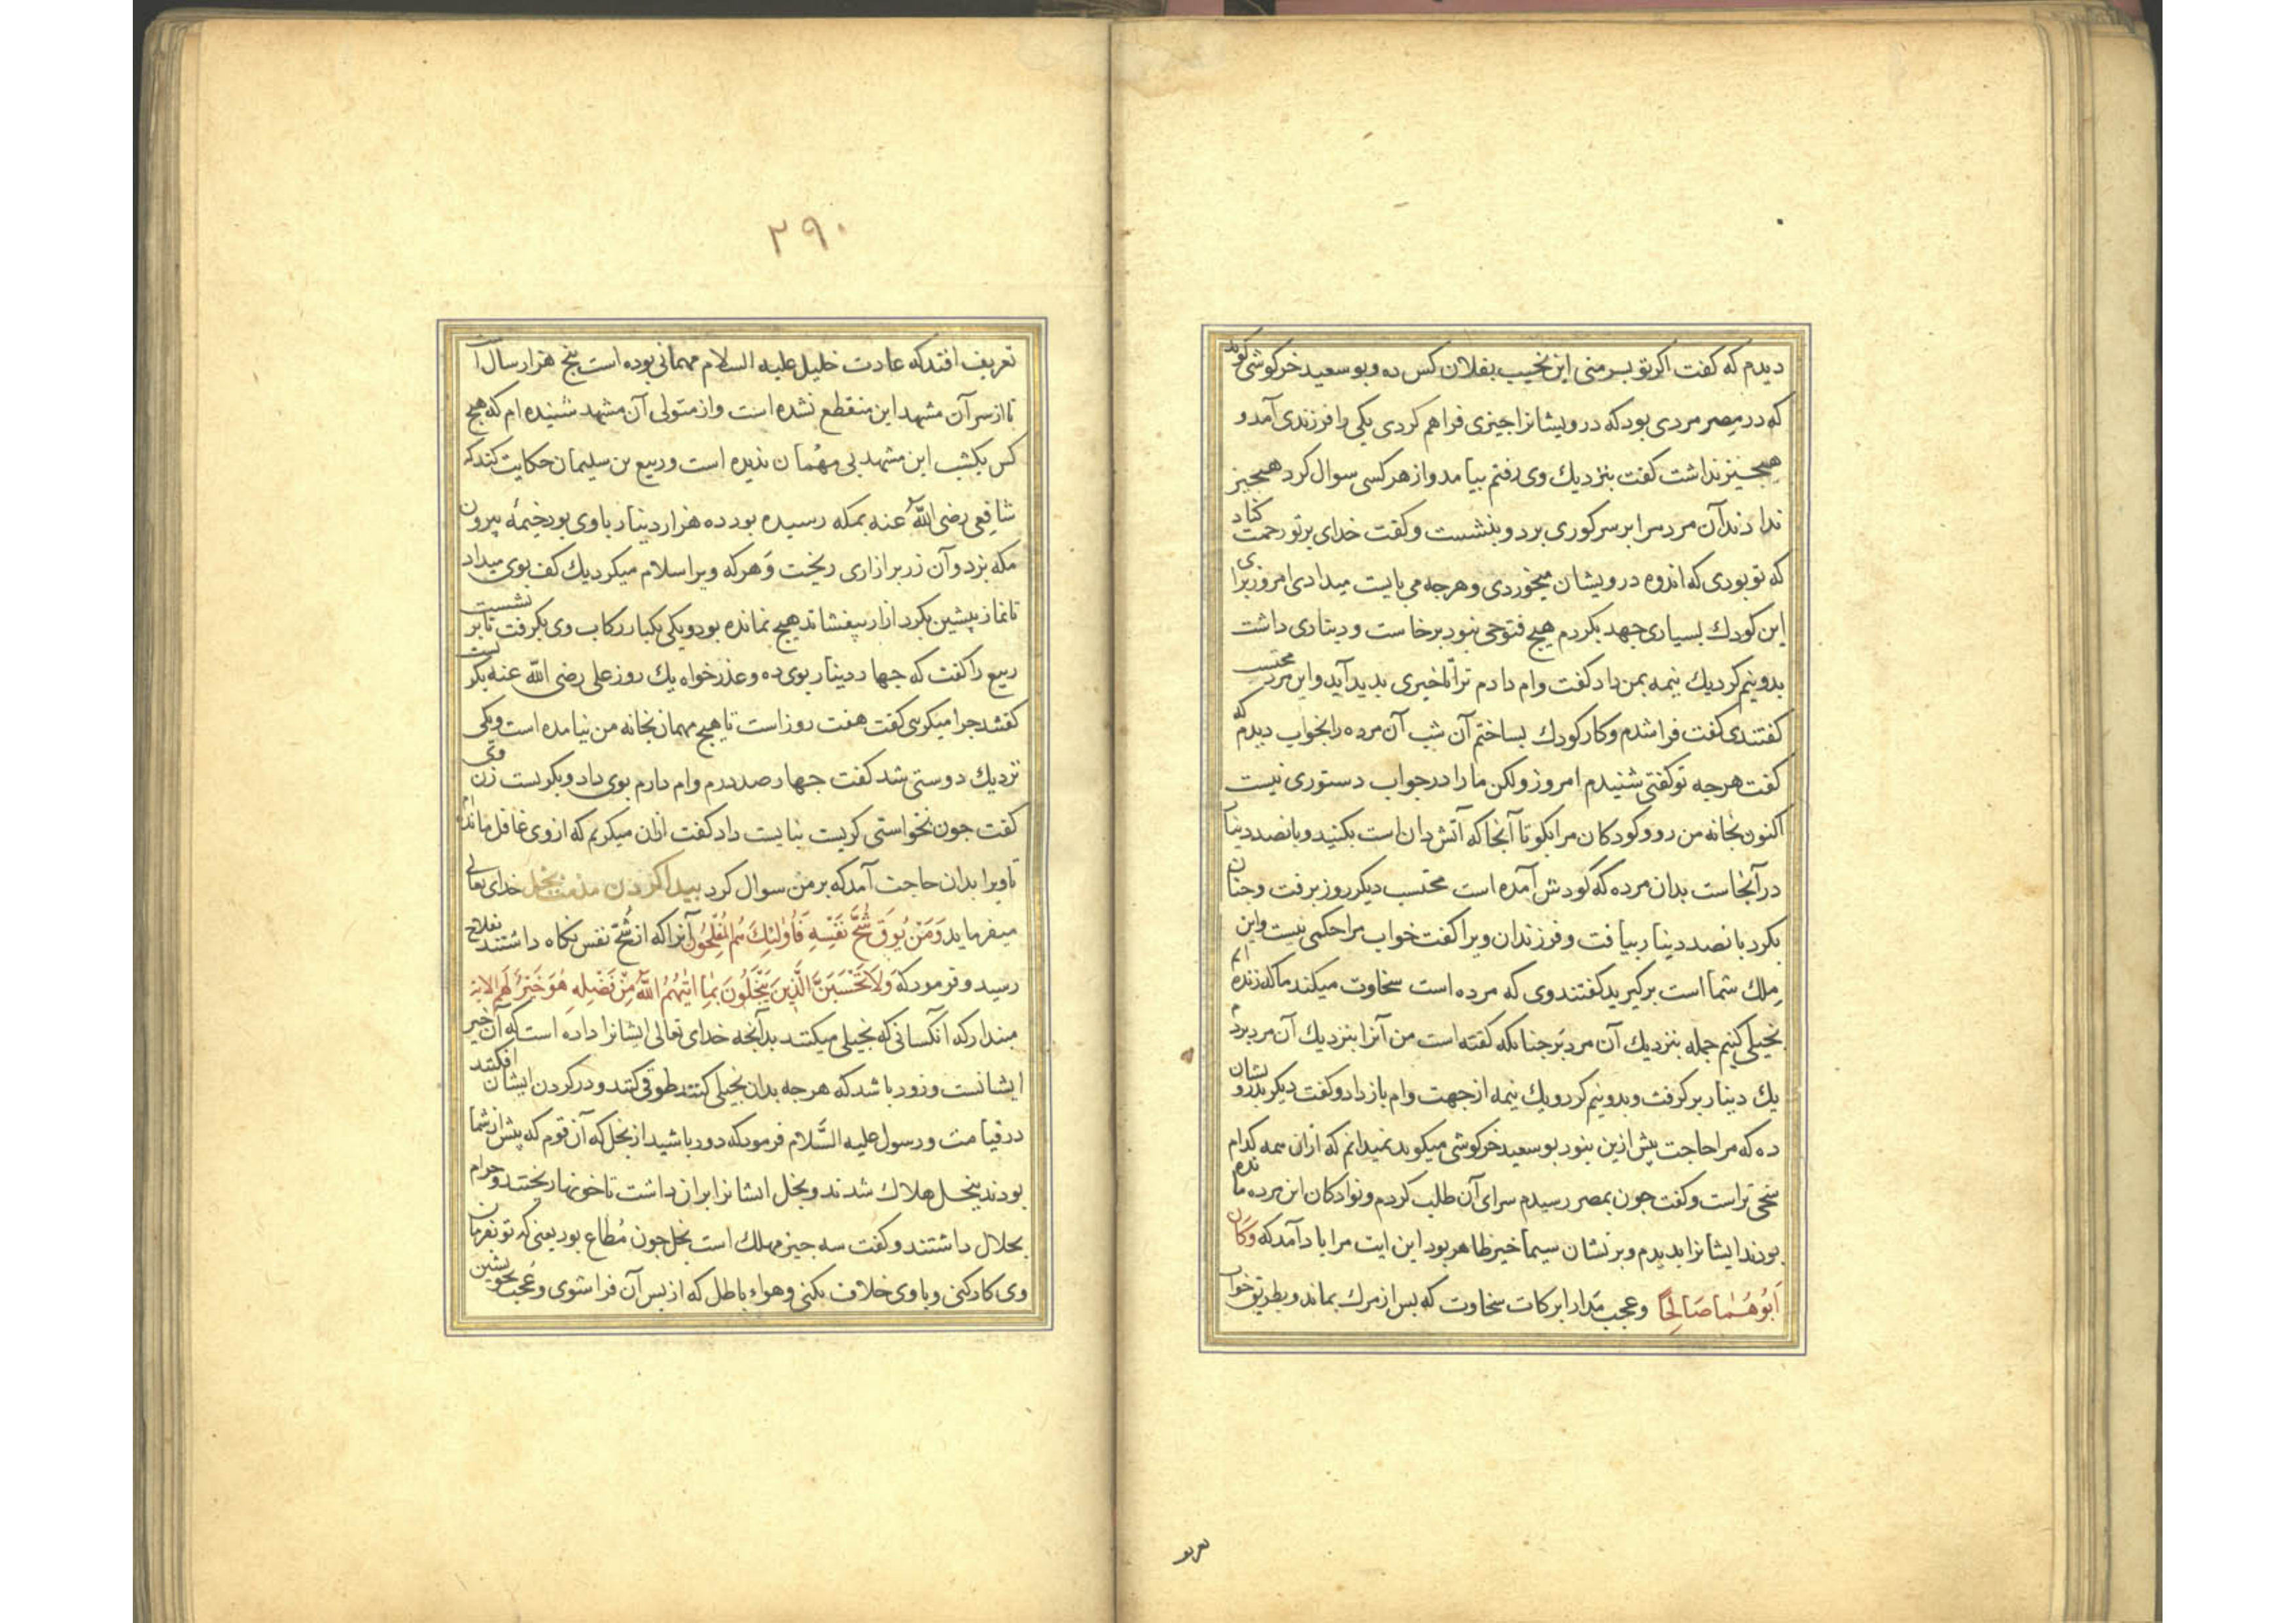 دیدم که کفت اکر تو بسر منی این نجیب بفلان کس ده و بو سعید خرکوشی کوید
که در مصر مردی بود که درویشانرا جیزی فراهم کردی یکی را فرزندی آمد و
هیجیز نداشت کفت بنزدیك وی رفتم بیامد و از هر کسی سوال کرد هیجیز
ندادند آن مرد مرا بر سر کوری برد و بنشست و کفت خدای بر تو رحمت کناد
که تو بودی که اندوه درویشان میخوردی و هرجه می بایست میدادی امروز برای
این کودك بسیاری جهد بکردم هیج فتوحی نبود برخاست و دیناری داشت
بدو نیم کرد یك نیمه بمن داد کفت وام دادم ترا تا خیری بدید آید و این مرد محتسب
کفتندی کفت فراشدم و کار کودك بساختم آن شب آن مرده را بخواب دیدم که
کفت هرجه تو کفتی شنیدم امروز ولکن ما را در جواب دستوری نیست
اکنون بخانه من رو و کودکان مرا بکو تا آنجا که آتش دان است بکنید و بانصد دینار
در آنجاست بدان مرده که کودش آمده است محتسب دیکر روز برفت و جنان
بکرد بانصد دینار بیافت و فرزندان ویرا کفت خواب مرا حکمی نیست و این
ملك شما است برکیرید کفتند وی که مرده است سخاوت میکند ما که زنده ایم
بخیلی کنیم جمله بنزدیك آن مرد بر جنانکه کفته است من آنرا بنزدیك آن مرد بردم
یك دینار برکرفت و بدو نیم کرد و یك نیمه از جهت وام باز داد و کفت دیکر بدرویشان
ده که مرا حاجت بیش ازین نبود بو سعید خرکوشی میکوید نمیدانم که ازان همه کدام
سخی تر است و کفت جون بمصر رسیدم سرای آن طلب کردم و نوادکان این مرده مانده
بودند ایشانرا بدیدم و بر نشان سیما خیر ظاهر بود این ایت مرا یاد آمد که وَکَان
اَبُوهُمَا صَالِحًا وعجب مدار ابرکات سخاوت که بس از مرك بماند و بطریق خواب
تعریف
۲۹۰
تعریف افتد که عادت خلیل علیه السلام مهمانی بوده است بنج هزار سال است
تا از سر آن مشهد این منقطع نشده است و از متولی آن مشهد شنیده ام که هیج
کس یکشب این مشهد بی مهمان ندیده است و ربیع بن سلیمان حکایت کند که
شافعی رضی الله عنه بمکه رسیده بود ده هزار دینار با وی بود خیمه بیرون
مکه بزد و آن زر بر ازاری ریخت و هر که ویرا سلام میکرد یك کف بوی میداد
تا نماز بیشین بکرد ازار بیفشاند هیج نمانده بود و یکی یکبار رکاب وی بکرفت تا بر نشست
ربیع را کفت که جهار دینار بوی ده و عذر خواه یك روز علی رضی الله عنه بکریست
کفتند جرا میکریی کفت هفت روز است تا هیج مهمان بخانه من نیامده است و یکی
نزدیك دوستی شد کفت جهار صد درم وام دارم بوی داد و بکریست زن وی
کفت جون نخواستی کریست نبایست داد کفت ازان میکریم که از وی غافل ماندم
تا ویرا بدان حاجت آمد که بر من سوال کرد بیدا کردن مذمت بخل خدای تعالی
میفرماید وَمَنْ یُوقَ شُحَّ نَفْسِهِ فَاُولٰئِكَ هُمُ الْمُفْلِحُونَ آنرا که از شُحّ نفس نکاه داشتند بفلاح
رسید و فرمود که وَلَا تَحْسَبَنَّ الَّذِینَ یَبْخَلُونَ بِمَا اٰتٰیهُمُ اللّٰهُ مِنْ فَضْلِهِ هُوَ خَیْرٌ لَهُمْ الایة
مبندار که انکسانی که بخیلی میکنند بدآنجه خدای تعالی ایشانرا داده است که آن خیر
ایشانست و زود باشد که هرجه بدان بخیلی کنند طوقی کنند و در کردن ایشان افکنند
در قیامت و رسول علیه السَّلام فرمود که دور باشید از بخل که آن قوم که بیش از شما
بودند ببخل هلاك شدند و بخل ایشانرا بران داشت تا خونها ریختند و حرام
بحلال داشتند و کفت سه جیز مهلك است بخل جون مُطاع بود یعنی که تو بفرمان
وی کار کنی و با وی خلاف نکنی و هواء باطل که از بس آن فرا شوی و عُجب بخویشتن